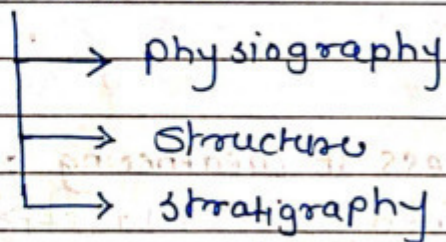 physiography
structure
stratigraphy